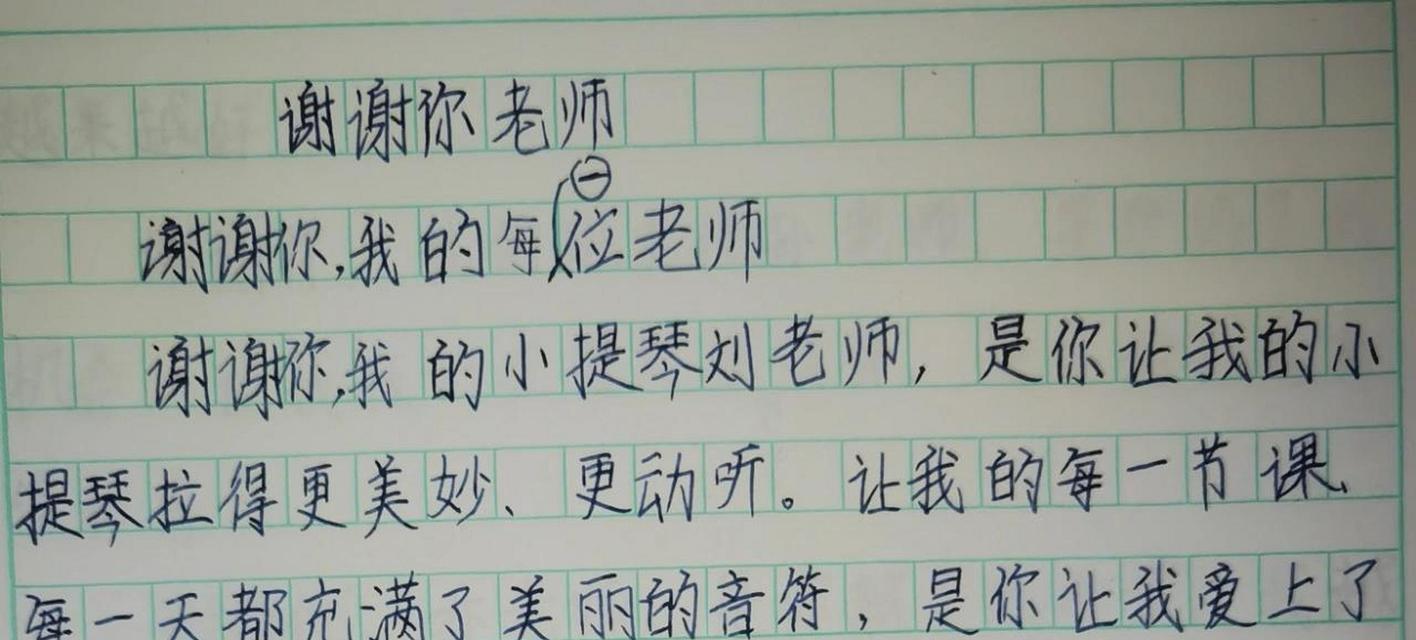 谢谢你老师
谢谢你,我的每一位老师
谢谢你,我的小提琴刘老师,是你让我的小
提琴拉得更美妙、更动听。让我的每一节课、
每一天都充满了美丽的音符,是你让我爱上了